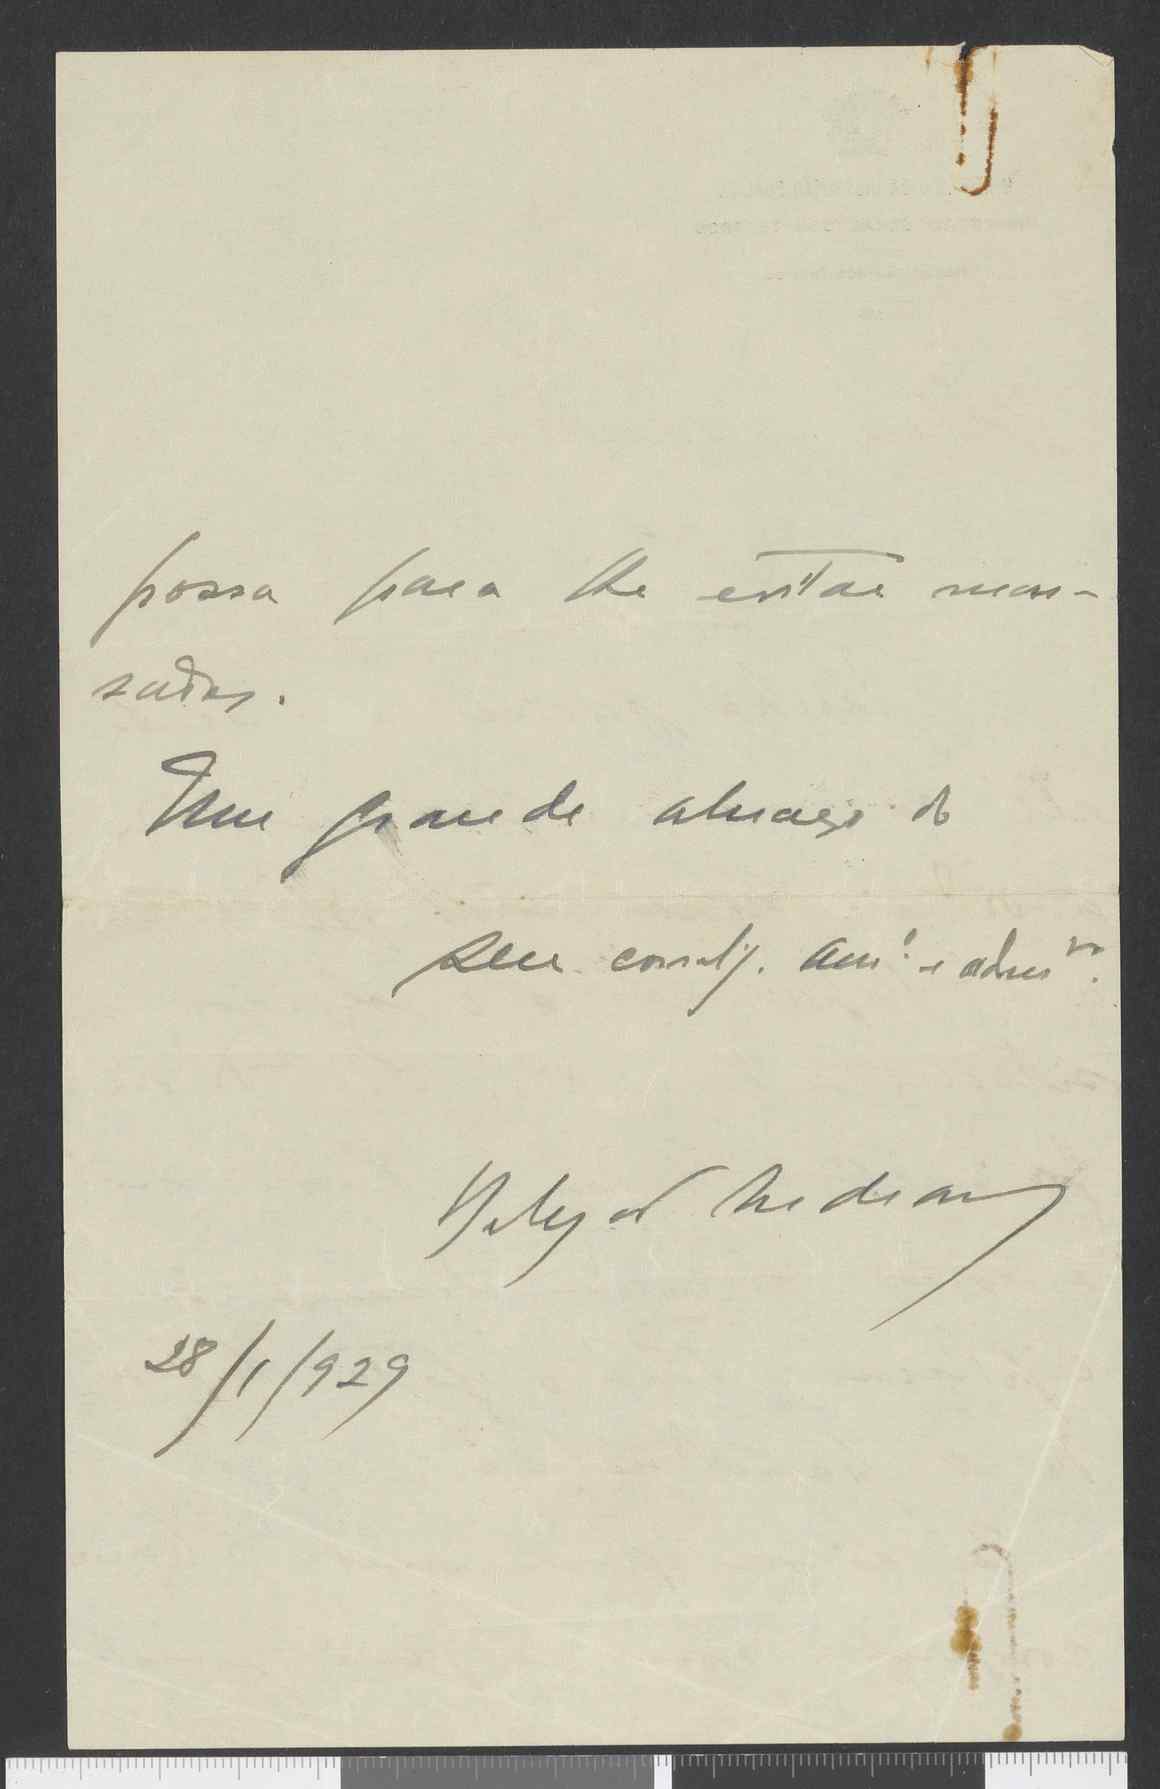 possa para lhe evitar mas-
sadas.
Um grande abraço do
seu correlig. amº e admºr.
28/1/929